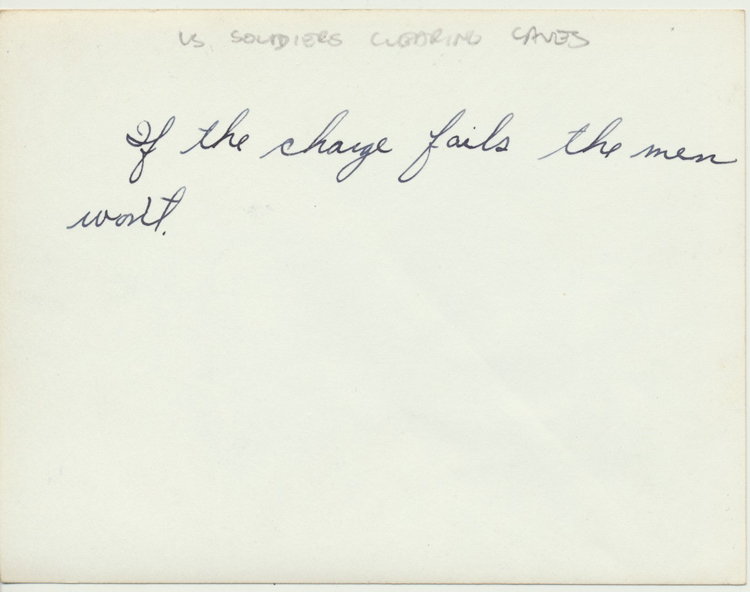 US SOLDIERS CLEARING CAVES
If the charge fails the men
won't.